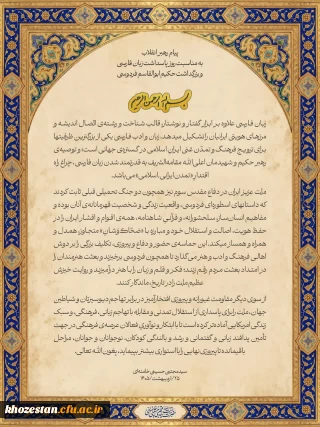 پیام رهبر انقلاب
به مناسبت روز پاسداشت زبان فارسی
و بزرگداشت حکیم ابوالقاسم فردوسی
زبان فارسی علاوه بر ابزار گفتار و نوشتار، قالب شناخت و رشته‌ی اتصال اندیشه و
مرزهای هویتی ایرانیان را تشکیل میدهد. زبان و ادب فارسی یکی از بزرگترین ظرفیتها
برای ترویج فرهنگ و تمدّن غنی ایران اسلامی در گستره‌ی جهانی است؛ و توصیه‌ی
رهبر حکیم و شهیدمان اعلی الله مقامه‌الشریف به قدرتمند شدن زبان فارسی، چراغ راه
اقتدار «تمدن ایرانی اسلامی» می‌باشد.
ملّت عزیز ایران در دفاع مقدس سوم نیز همچون دو جنگ تحمیلی قبلی ثابت کردند
که داستانهای اسطوره‌ای فردوسی، واقعیت زندگی و شخصیت قهرمانانه‌ی آنان بوده و
مفاهیم انسان‌ساز، سلحشورانه، و قرآنی شاهنامه، همه‌ی اقوام و اقشار ایران را در
حفظ هویت، اصالت و استقلال خود و مبارزه با «ضحّاک‌وَشان» متجاوز، همدل و
همراه و همساز میکند. این حماسه‌ی حضور و دفاع و پیروزی، تکلیف بزرگی را بر دوش
اهالی فرهنگ و ادب و هنر می‌گذارد تا همچون فردوسی برخیزند و بعثت هنرمندان را
در امتداد بعثت مردم رقم زنند؛ فکر و قلم و زبان را با هنر درآمیزند و روایت خیزش
عظیم ملت را در تاریخ، ماندگار کنند.
از سوی دیگر مقاومت غیورانه و پیروزی افتخارآمیز در برابر تهاجم دیوسیرتان و شیاطین
جهان، ملت را برای پاسداری از استقلال تمدنی و مقابله با تهاجم زبانی، فرهنگی، و سبک
زندگی آمریکایی آماده‌تر کرده است تا با ابتکار و نوآوریِ فعالان عرصه‌ی فرهنگی در جهت
تأمین پدافند زبانی و گفتمانی و رشد و بالندگی کودکان، نوجوانان و جوانان، مراحل
باقیمانده تا پیروزی نهایی را با استواری بیشتر بپیماید، بعون الله تعالی.
سیدمجتبی حسینی خامنه‌ای
۲۵/اردیبهشت/۱۴۰۵
khozestan.cfu.ac.ir